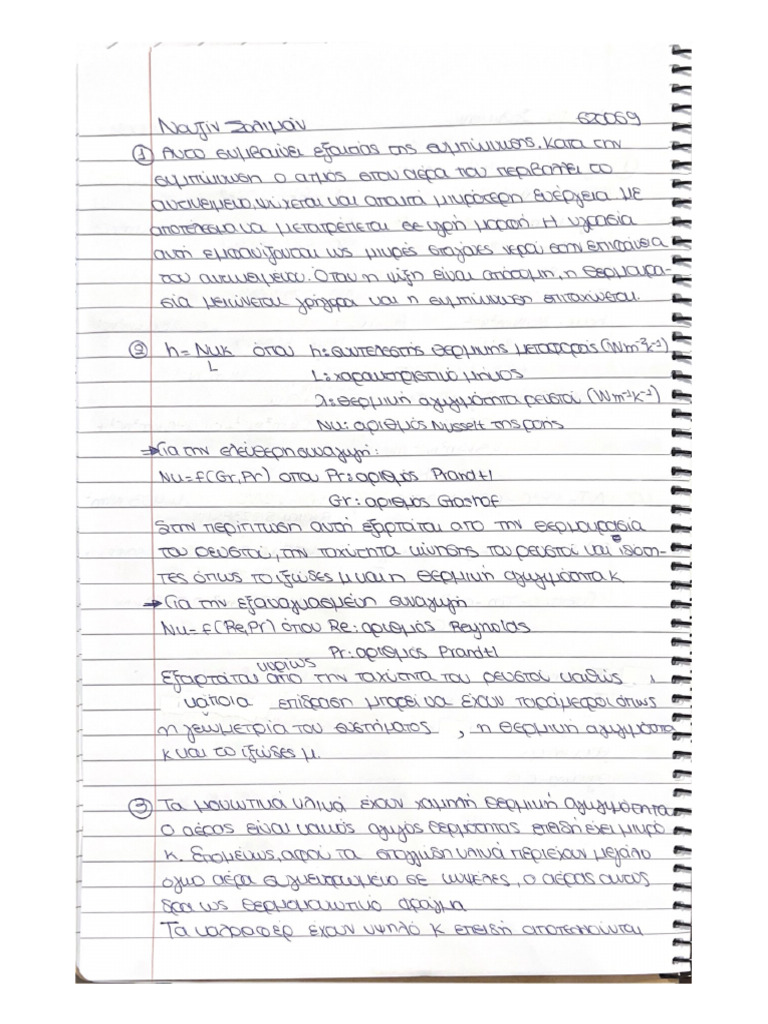 Ναζίν Σολιμάν 620059
① Αυτό συμβαίνει εξαιτίας της συμπύκνωσης. Κατά την
συμπύκνωση ο ατμός στον αέρα που περιβάλλει το
αντικείμενο ψύχεται και απαιτά μικρότερη ενέργεια με
αποτέλεσμα να μετατρέπεται σε υγρή μορφή. Η υγρασία
αυτή εμφανίζεται ως μικρές σταγόνες νερού στην επιφάνεια
του αντικειμένου. Όταν η ψύξη είναι απότομη, η θερμοκρα-
σία μειώνεται γρήγορα και η συμπύκνωση επιταχύνεται.
② h = Nuk/L όπου h: συντελεστής θερμικής μεταφοράς (Wm⁻²k⁻¹)
L: χαρακτηριστικό μήκος
λ: θερμική αγωγιμότητα ρευστού (Wm⁻¹K⁻¹)
Nu: αριθμός Nusselt της ροής
→ Για την ελεύθερη συναγωγή:
Nu=f(Gr,Pr) όπου Pr: αριθμός Prandtl
Gr: αριθμός Grashof
Στην περίπτωση αυτή εξαρτάται από την θερμοκρασία
του ρευστού, την ταχύτητα κίνησης του ρευστού και ιδιότη-
τες όπως το ιξώδες μ και η θερμική αγωγιμότητα κ
→ Για την εξαναγκασμένη συναγωγή
Nu=f(Re,Pr) όπου Re: αριθμός Reynolds
Pr: αριθμός Prandtl
Εξαρτάται κυρίως από την ταχύτητα του ρευστού καθώς
κάποια επίδραση μπορεί να έχουν παράμετροι όπως
η γεωμετρία του συστήματος, η θερμική αγωγιμότητα
κ και το ιξώδες μ.
③ Τα μονωτικά υλικά έχουν χαμηλή θερμική αγωγιμότητα
Ο αέρας είναι κακός αγωγός θερμότητας επειδή έχει μικρό
κ. Επομένως, αφού τα σπογγώδη υλικά περιέχουν μεγάλο
όγκο αέρα συγκεντρωμένο σε κυψέλες, ο αέρας αυτός
δρα ως θερμομονωτικό φράγμα
Τα καλοριφέρ έχουν υψηλό κ επειδή αποτελούνται